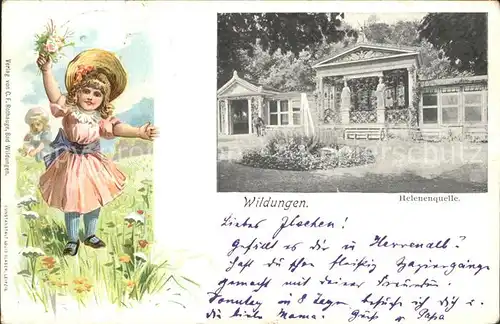 Verlag von C. F. Rothauge, Bad Wildungen.
Wildungen.
Helenenquelle.
Liebes Flachen!
Gefällt es dir in Herrenalb?
Hast du schon fleißig Spaziergänge
gemacht mit deiner Freundin?
Sonntag in 8 Tagen besuche ich dich u.
die liebe Mama. Gruß v. Papa